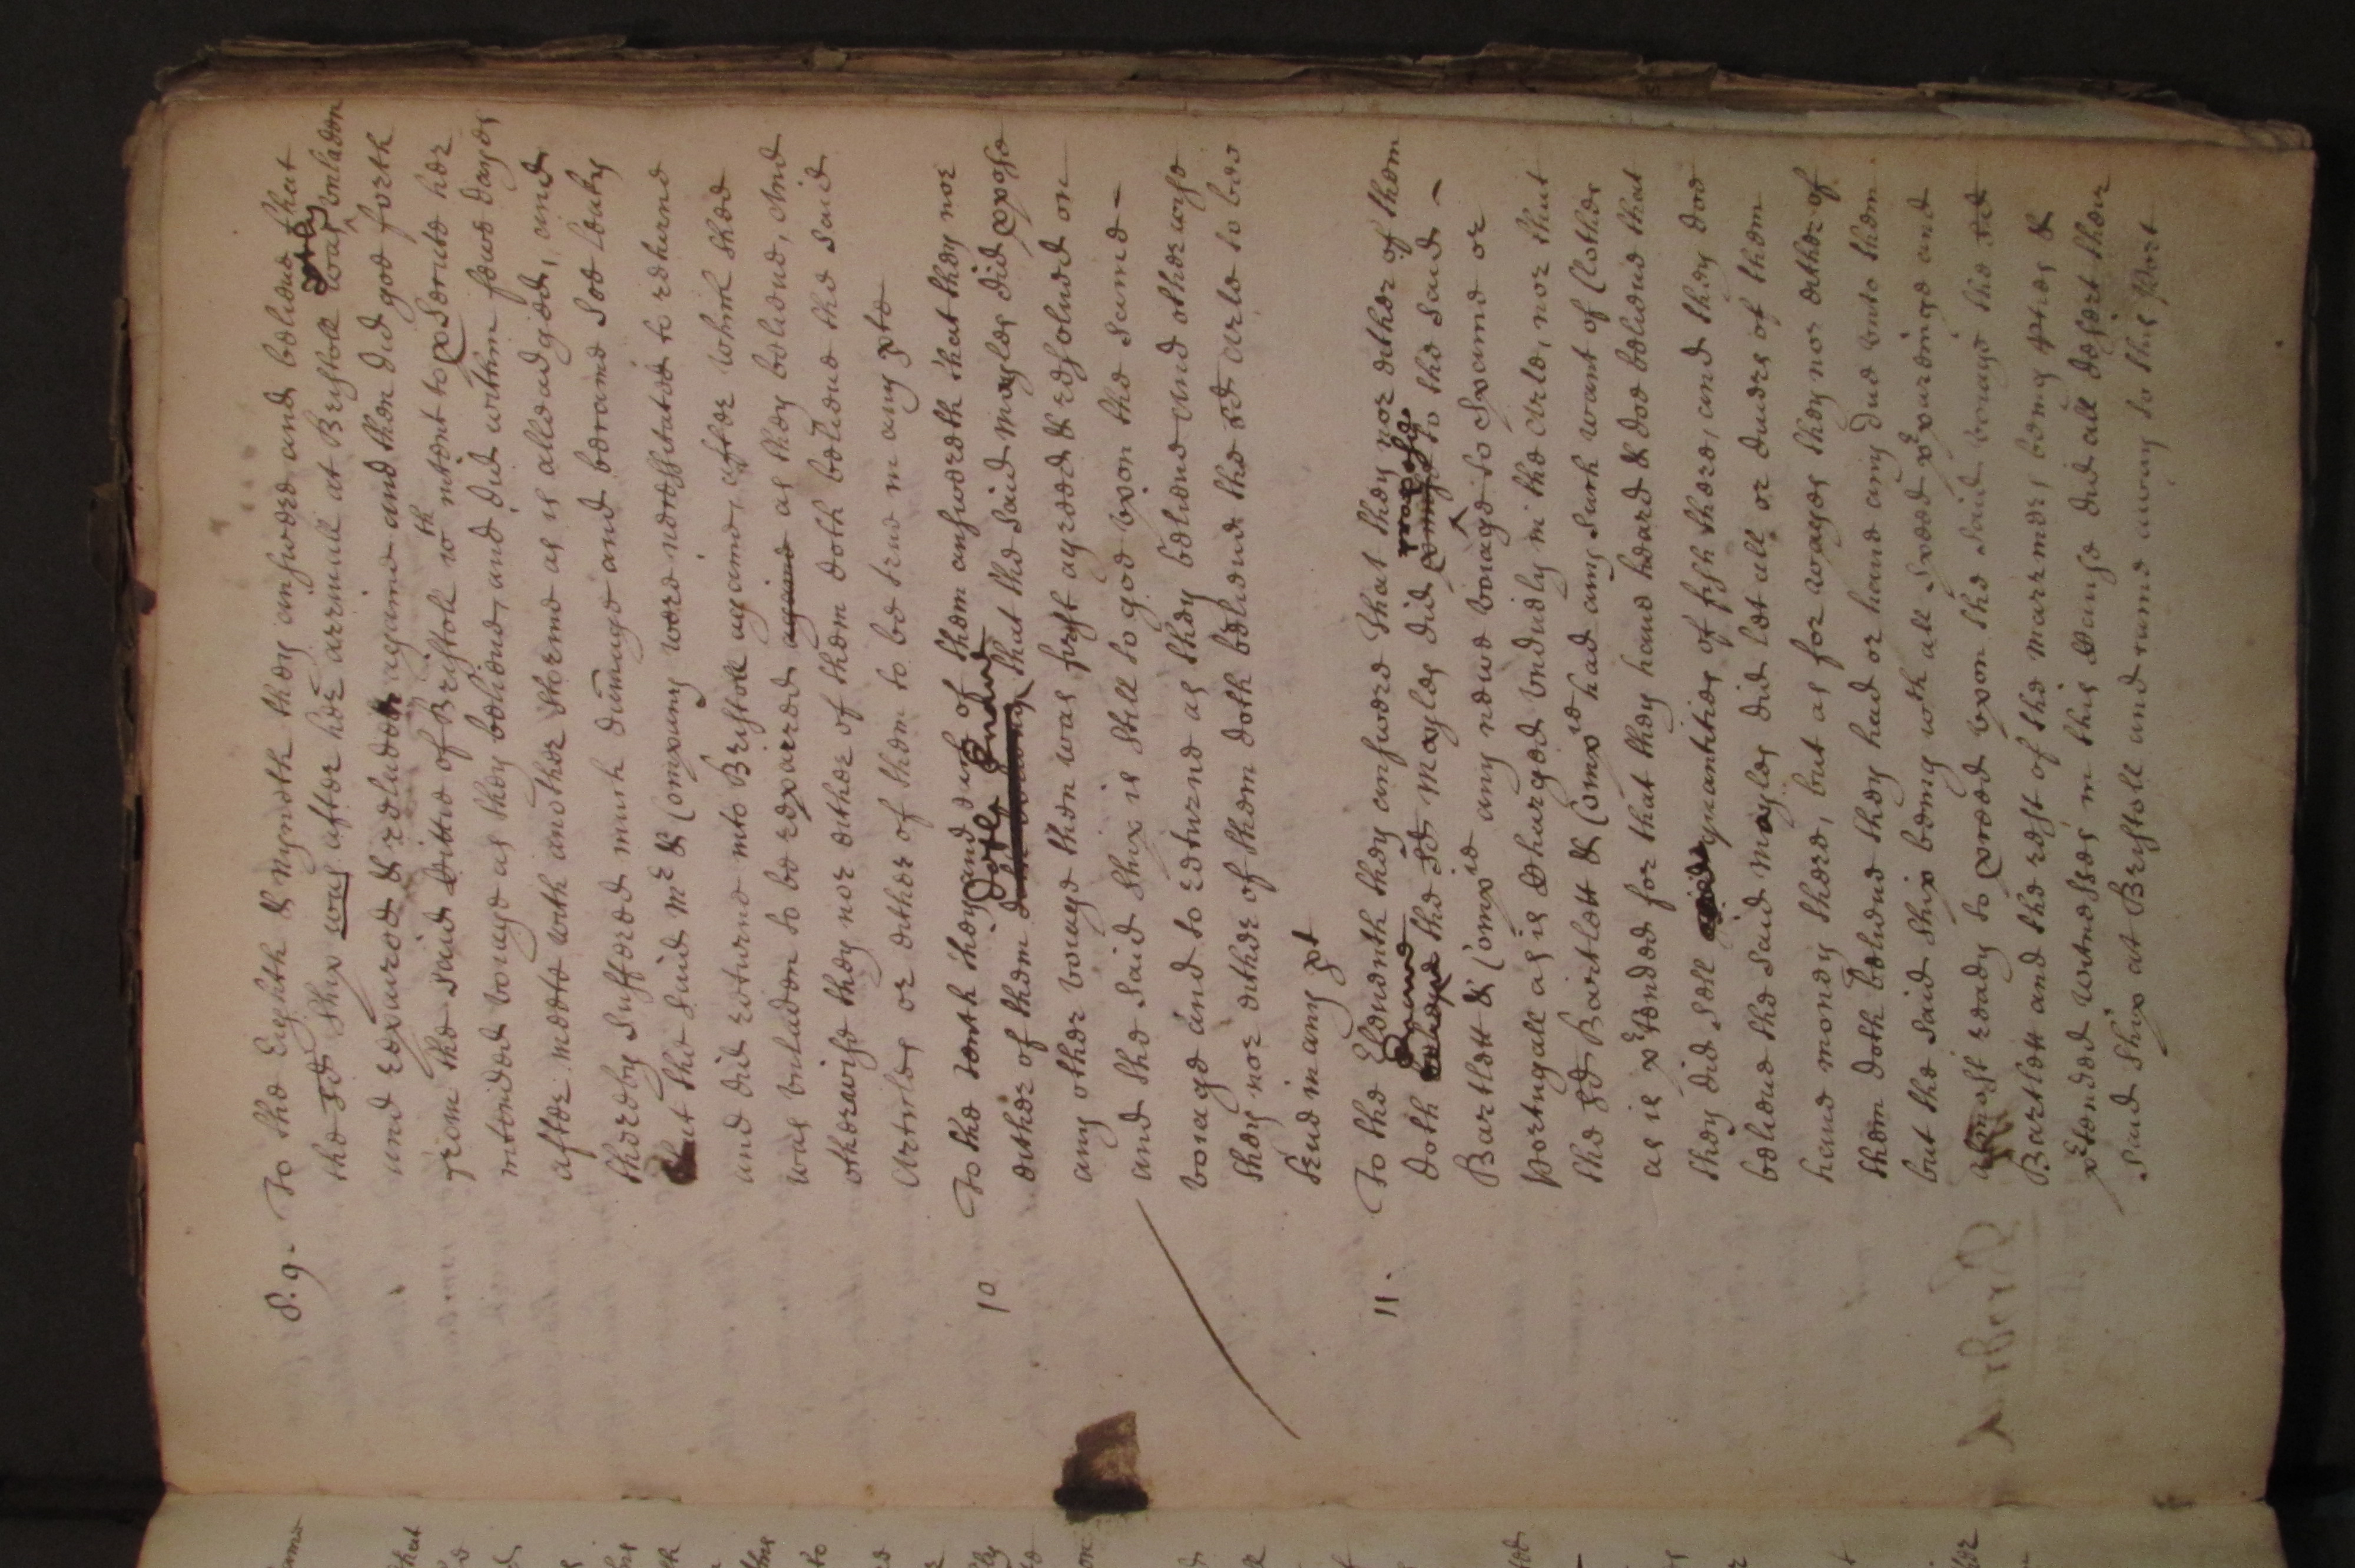 8.9. To the Eighth & Nyneth they answere and beleive that
the sd Ship was after her arrivall at Bristoll was doth unladen
and repaired & reladen againe and then did goe forth
from the said Citte of Bristoll wth intent to pserute her
intended voiage as they beleive, and did within fewe dayes
after meete with another storme as is alleadged, and
thereby suffered much damage and became soe leaky
that the said Mr & Company were necessitated to returne
and did returne into Bristoll againe, after which shee
was unladen to be repaired againe as they beleive, And
otherwise they nor either of them doth beleive the said
Articles or either of them to be true in any pte
10 To the tenth they and eich of them answereth that they nor
either of them doth beleive that the said Mayles did ppose
any other voiage then was first agreed & resolved on
and the said Ship is still to goe upon the same -
voiage and to returne as they beleive And otherwise
they nor either of them doth beleive the sd Arle to bee
true in any pt
11. To the Eleventh they answere That they nor either of them
doth beleive the sd Mayles did propose to the said -
Bartlett & Compie any newe voiage to Spaine or
Portugall as is Charged unduly in the Arle, nor that
the sd Bartlett & Compie had any such want of Clothes
as is ptended for that they have heard & doe beleive that
they did sell quantities of fish there, and they doe
beleive the said Mayles did let all or divers of them
have money there, but as for wages they nor either of
them doth beleive they had or have any due unto them
but the said Ship being wth all speed pparinge and
almost ready to preed upon the said voiage the sd
Bartlett and the rest of the marrners being pties &
ptended witnesses in this Cause did all desert their
said Ship at Bristoll and runne away to this Port